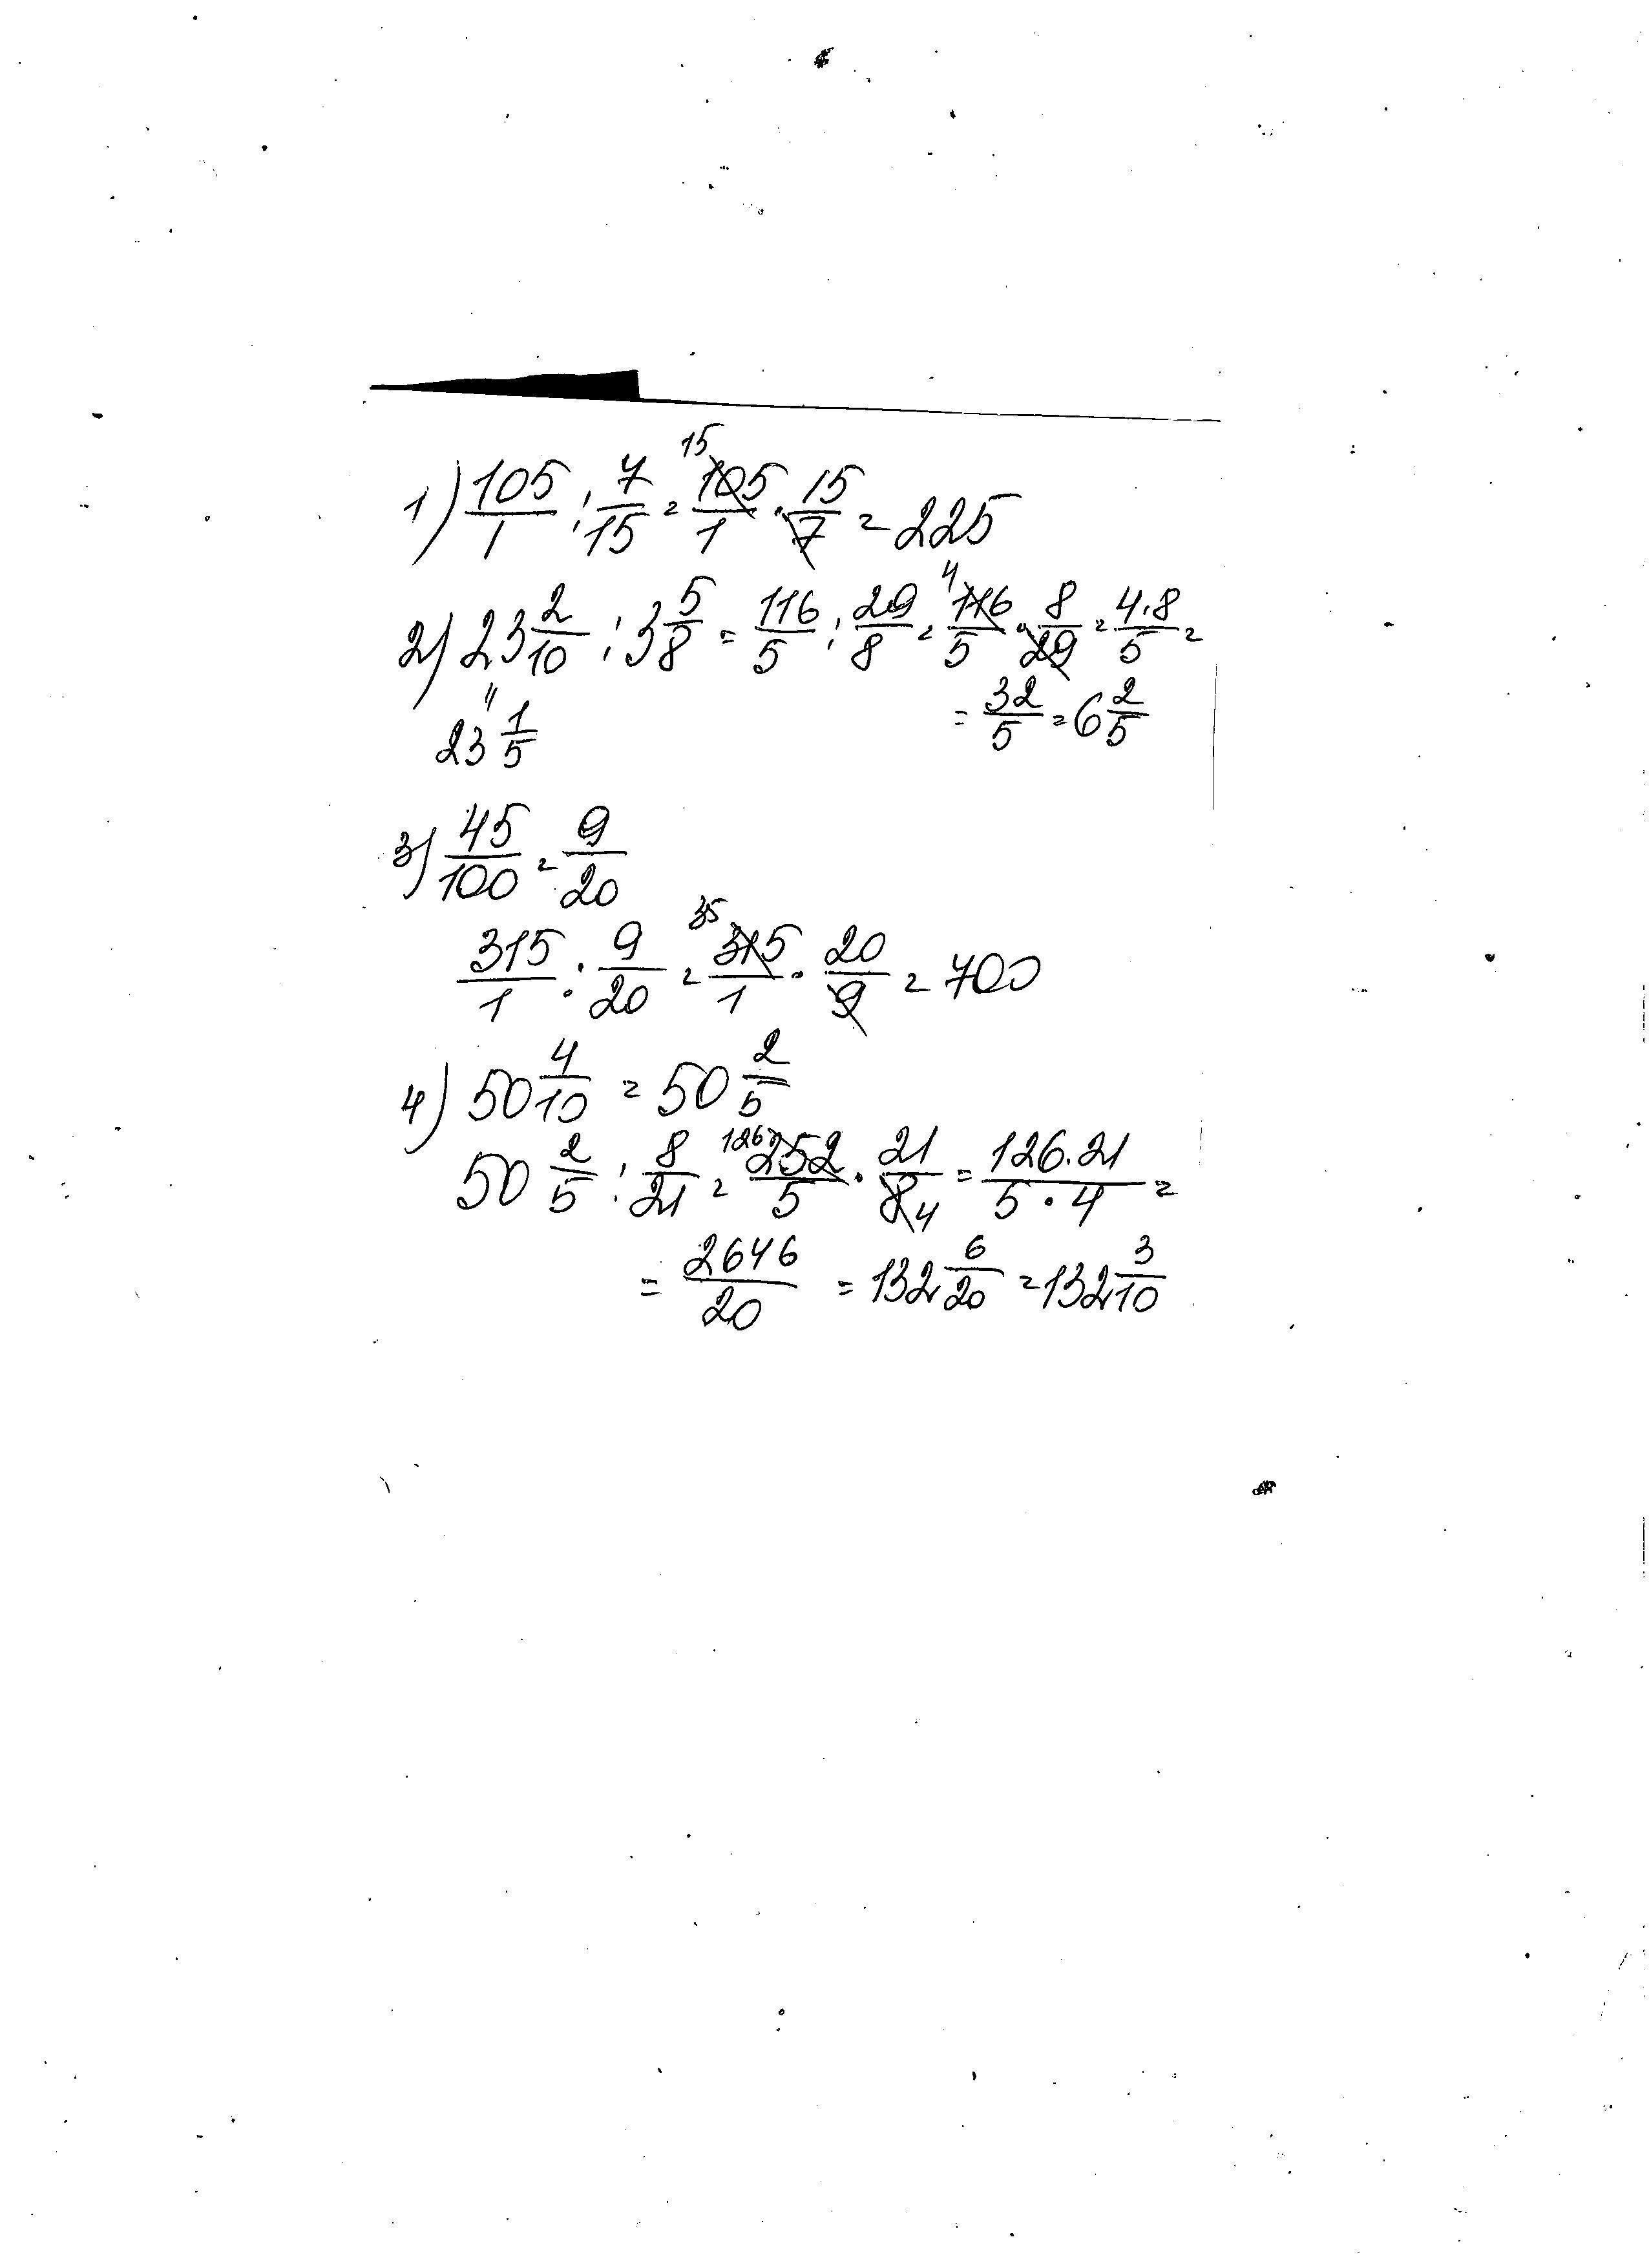 1) 105/1 : 7/15 = 15 105/1 · 15/7 = 225
2) 23 2/10 : 3 5/8 = 116/5 : 29/8 = 4 116/5 · 8/29 = 4·8/5 =
" 23 1/5 = 32/5 = 6 2/5
3) 45/100 = 9/20
315/1 : 9/20 = 35 315/1 · 20/9 = 700
4) 50 4/10 = 50 2/5
50 2/5 : 8/21 = 126 252/5 · 21/8 4 = 126·21/5·4 =
= 2646/20 = 132 6/20 = 132 3/10